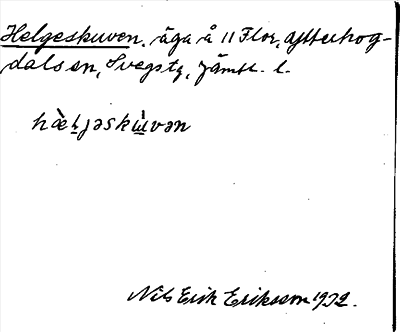 Helgeskuven, äga å 11 Flor, Ytterhog-
dals sn, Svegs tg, Jämtl. l.
hæ̀ḷjəskù̱vən
Nils Erik Eriksson 1932.